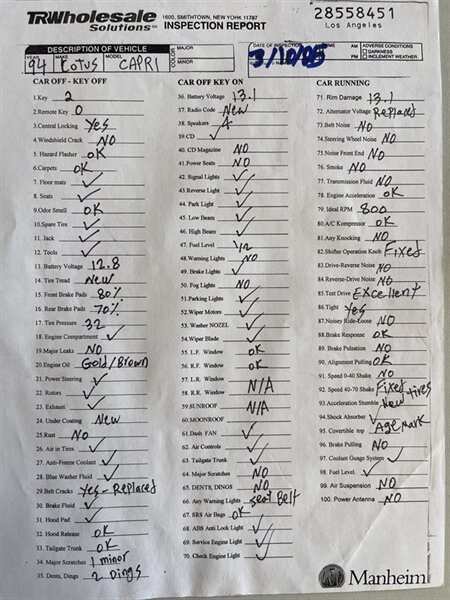 TRWholesale Solutions 1600, SMITHTOWN, NEW YORK 11787
INSPECTION REPORT
28558451
Los Angeles
DESCRIPTION OF VEHICLE
MAJOR
MINOR
DATE OF INSPECTION
3/10/05
AM
PM
ADVERSE CONDITIONS
DARKNESS
INCLEMENT WEATHER
YEAR 94 MAKE Lotus MODEL CAPRI
CAR OFF - KEY OFF
1.Key 2
2.Remote Key 0
3.Central Locking Yes
4.Windshield Crack NO
5. Hazard Flasher OK
6.Carpets OK
7. Floor mats ✓
8. Seats ✓
9.Odor Smell OK
10.Spare Tire ✓
11. Jack ✓
12. Tools ✓
13. Battery Voltage 12.8
14. Tire Tread New
15. Front Brake Pads 80%
16. Rear Brake Pads 70%
17. Tire Pressure 32
18. Engine Compartment ✓
19.Major Leaks NO
20.Engine Oil Gold/Brown
21. Power Steering ✓
22. Rotors ✓
23. Exhaust ✓
24. Under Coating New
25.Rust NO
26. Air in Tires ✓
27. Anti-Freeze Coolant ✓
28. Blue Washer Fluid ✓
29.Belt Cracks Yes-Replaced
30. Brake Fluid ✓
31. Hood Pad ✓
32. Hood Release OK
33. Tailgate Trunk OK
34. Major Scratches 1 minor
35. Dents, Dings 2 Dings
CAR OFF KEY ON
36. Battery Voltage 13.1
37. Radio Code New
38. Speakers 4
39. CD ✓
40. CD Magazine NO
41. Power Seats NO
42. Signal Lights ✓
43.Reverse Light ✓
44. Park Light ✓
45. Low Beam ✓
46. High Beam ✓
47. Fuel Level 1/2
48.Warning Lights NO
49. Brake Lights ✓
50. Fog Lights NO
51.Parking Lights ✓
52.Wiper Motors ✓
53. Washer NOZEL ✓
54.Wiper Blade ✓
55. L.F. Window OK
56. R.F. Window OK
57. L.R. Window
58. R.R. Window N/A
59.SUNROOF N/A
60.MOONROOF
61.Dash FAN ✓
62. Air Controls ✓
63. Tailgate Trunk ✓
64. Major Scratches NO
65. DENTS, DINGS NO
66. Any Warning Lights Seat Belt
67. SRS Air Bags OK
68. ABS Anti Lock Light ✓
69. Service Engine Light ✓
70. Check Engine Light ✓
CAR RUNNING
71. Rim Damage 13.1
72. Alternator Voltage Replaced
73.Belt Noise NO
74.Steering Wheel Noise NO
75.Noise Front End NO
76. Smoke NO
77. Transmission Fluid NO
78. Engine Acceleration OK
79. Ideal RPM 800
80. A/C Kompressor OK
81. Any Knocking NO
82.Shifter Operation Knob Fixed
83.Drive-Reverse Noise NO
84.Reverse-Drive Noise NO
85. Test Drive Excellent
86.Tight Yes
87.Noisey Ride-Loose NO
88.Brake Response OK
89. Brake Pulsation NO
90. Alignment Pulling OK
91. Speed 0-40 Shake NO
92. Speed 40-70 Shake Fixed
93.Acceleration Stumble New tires
94.Shock Absorber ✓
95. Covertible top Age Mark
96. Brake Pulling NO
97. Coolant Guage System ✓
98. Fuel Level ✓
99. Air Suspension NO
100. Power Antenna NO
Manheim